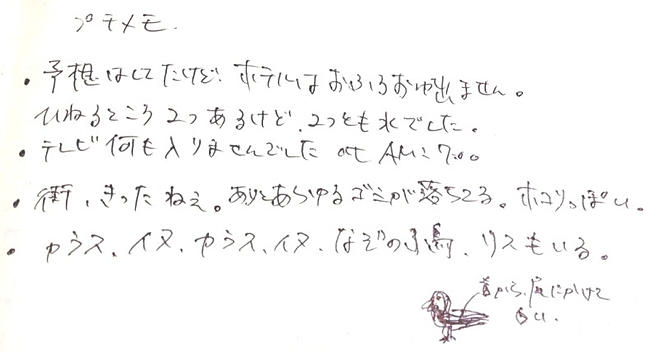 プチメモ.
・予想はしてたけど. ホテルはおふろお湯出ません。
ひねるところ2つあるけど、2つとも水でした。
・テレビ何も入りませんでした at AM:7:00
・街、きったねえ。ありとあらゆるゴミが落ちてる。ホコリっぽい。
・カラス、イヌ、カラス、イヌ、なぞの鳥、リスもいる。
首から、尾にかけて
白い.